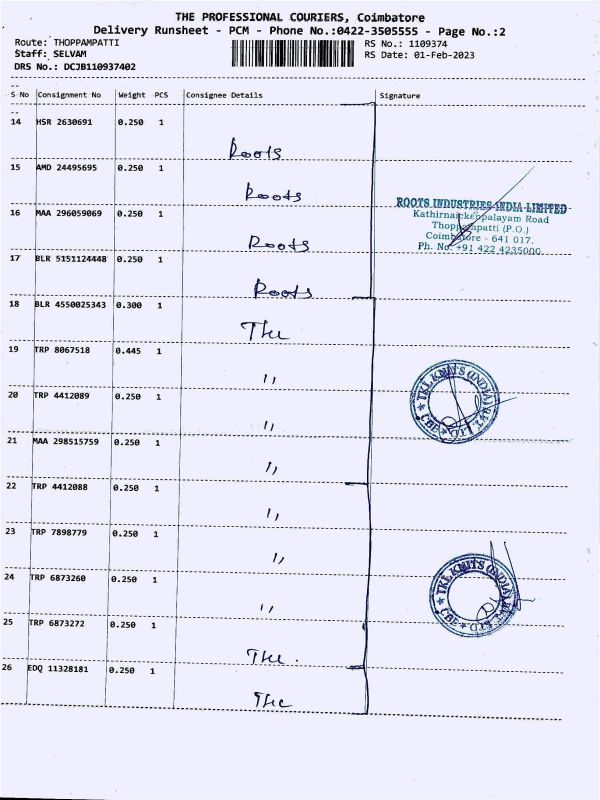 THE PROFESSIONAL COURIERS, Coimbatore
Delivery Runsheet - PCM - Phone No.:0422-3505555 - Page No.:2
Route: THOPPAMPATTI RS No.: 1109374
Staff: SELVAM RS Date: 01-Feb-2023
DRS No.: DCJB110937402
S No Consignment No Weight PCS Consignee Details Signature
14 HSR 2630691 0.250 1
Roots
15 AMD 24495695 0.250 1
Roots
16 MAA 296059069 0.250 1
Roots
17 BLR 5151124448 0.250 1
Roots
ROOTS INDUSTRIES INDIA LIMITED
Kathirnaickenpalayam Road
Thoppampatti (P.O.)
Coimbatore - 641 017.
Ph. No: +91 422 4235000.
18 BLR 4550025343 0.300 1
The
19 TRP 8067518 0.445 1
"
20 TRP 4412089 0.250 1
"
TKL KNITS (INDIA) PVT. LTD. ★ CBE ★
21 MAA 298515759 0.250 1
"
22 TRP 4412088 0.250 1
"
23 TRP 7898779 0.250 1
"
24 TRP 6873260 0.250 1
"
TKL KNITS (INDIA) PVT. LTD. ★ CBE ★
25 TRP 6873272 0.250 1
The.
26 EDQ 11328181 0.250 1
The